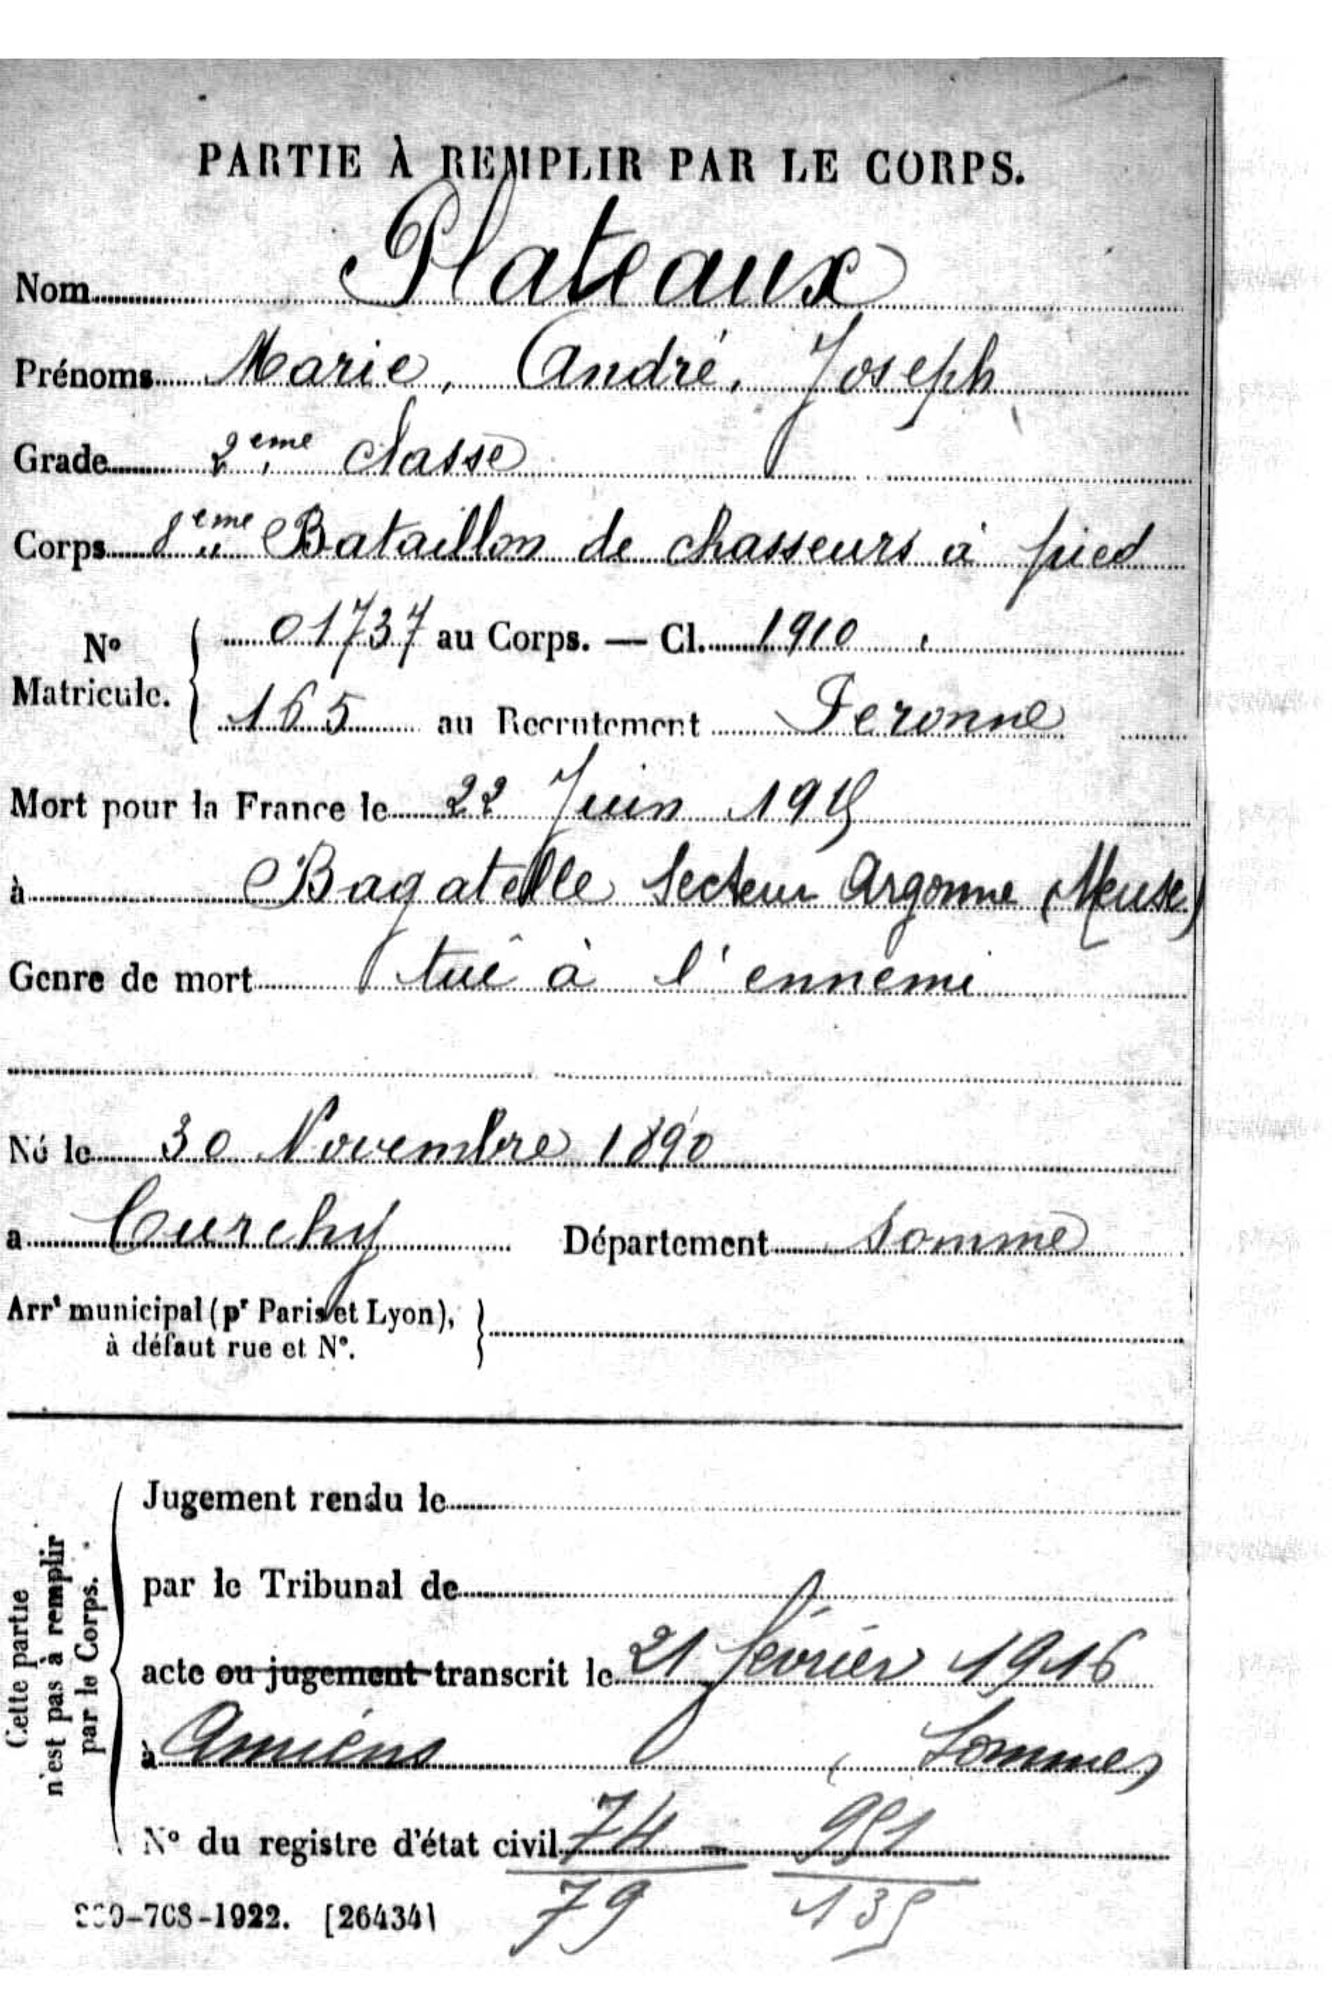 PARTIE À REMPLIR PAR LE CORPS.
Nom Plateaux
Prénoms Marie, André, Joseph
Grade 2eme classe
Corps 8eme Bataillon de chasseurs à pied
No Matricule. { 01737 au Corps. — Cl. 1910
165 au Recrutement Peronne
Mort pour la France le 22 Juin 1915
à Bagatelle secteur Argonne (Meuse)
Genre de mort tué à l'ennemi
Né le 30 Novembre 1890
a Curchy Département Somme
Arrt municipal (pr Paris et Lyon), }
à défaut rue et No.
Cette partie
n'est pas à remplir
par le Corps.
Jugement rendu le
par le Tribunal de
acte ou jugement transcrit le 21 février 1916
à Amiens (Somme)
No du registre d'état civil 74 — 951
79 135
-708-1922. [26434]